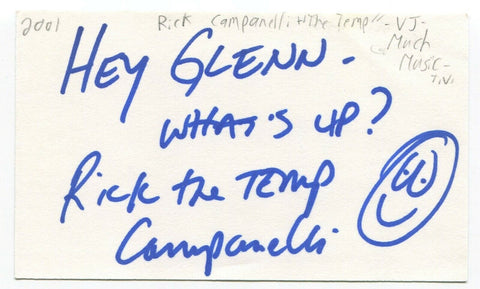 2001
Rick Campanelli "The Temp" - VJ -
Much
Music -
T.V.
HEY GLENN -
WHAT'S UP?
Rick the TEMP
Campanelli